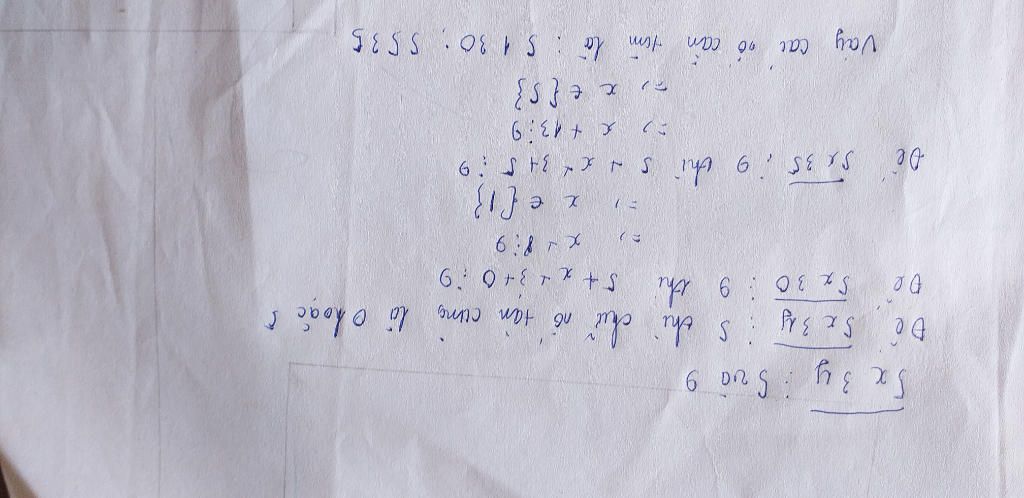 5x3y ⋮ 5 và 9
Để 5x3y ⋮ 5 thì chữ số tận cùng là 0 hoặc 5
Để 5x30 ⋮ 9 thì 5 + x + 3 + 0 ⋮ 9
=> x + 8 ⋮ 9
=> x ∈ {1}
Để 5x35 ⋮ 9 thì 5 + x + 3 + 5 ⋮ 9
=> x + 13 ⋮ 9
=> x ∈ {5}
Vậy các số cần tìm là : 5130 ; 5535